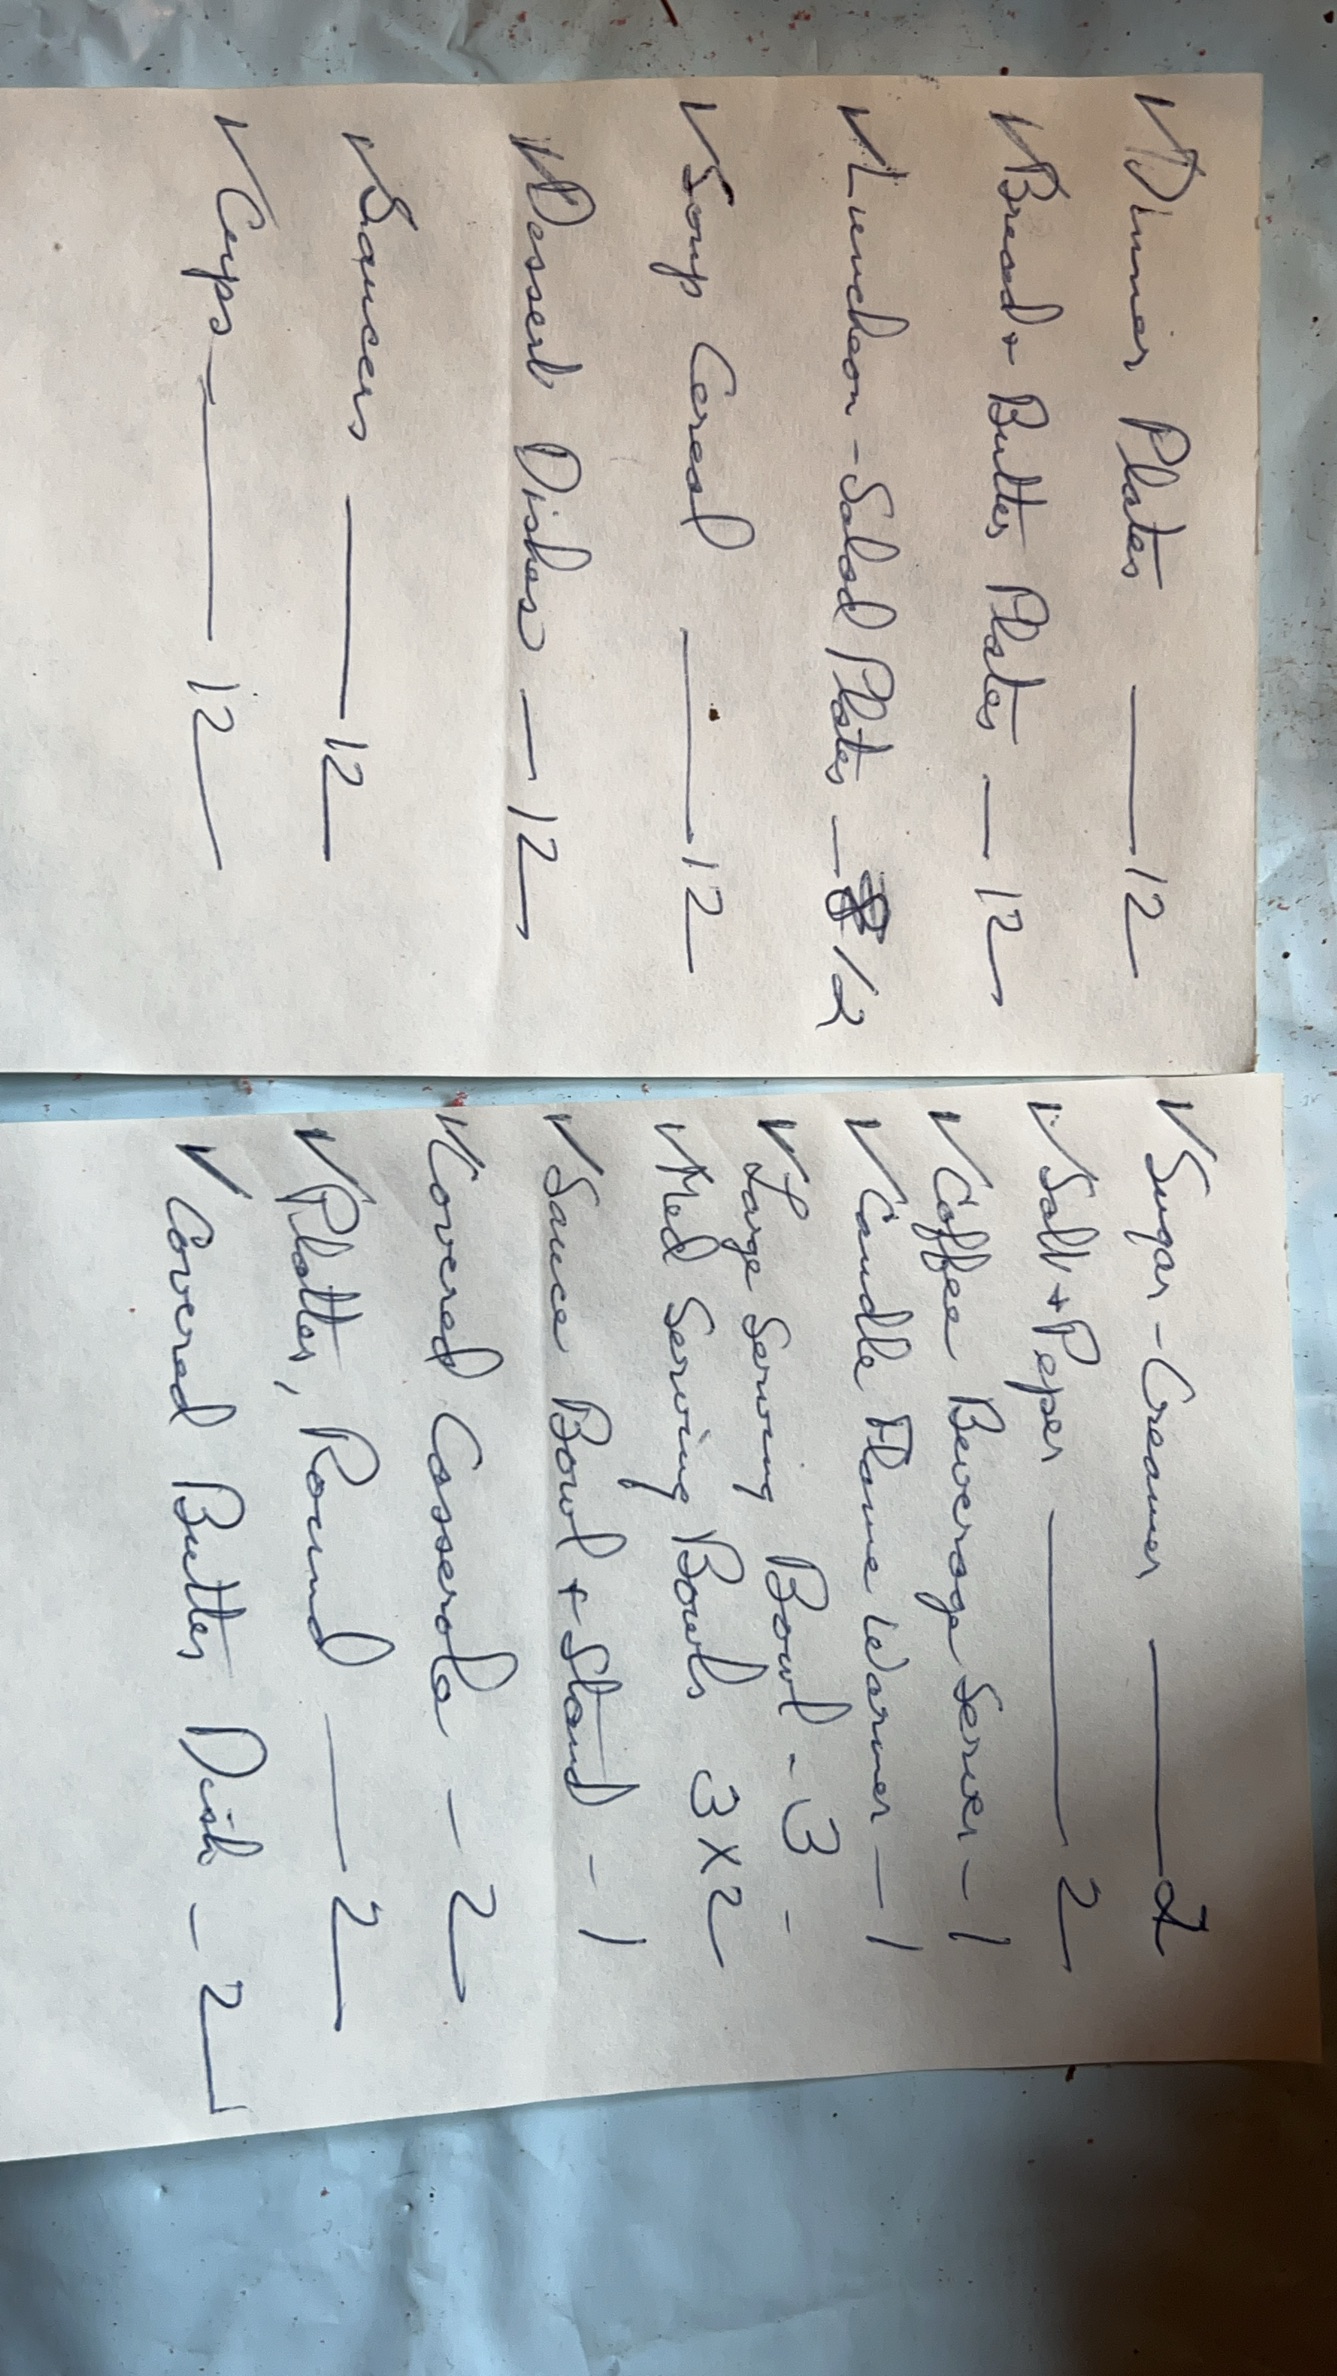 ✓ Dinner Plates — 12
✓ Bread + Butter Plates — 12
✓ Luncheon - Salad Plates — 8 12
✓ Soup Cereal — 12
✓ Dessert Dishes — 12
✓ Saucers — 12
✓ Cups — 12
✓ Sugar - Creamer — 2
✓ Salt + Peper — 2
✓ Coffee Beverage Server - 1
✓ Candle Flame Warmer — 1
✓ Large Serving Bowl - 3 -
✓ Med Serving Bowls 3 x 2
✓ Sauce Bowl + Stand - 1
✓ Covered Casserole - 2
✓ Platter, Round — 2
✓ Covered Butter Dish - 2